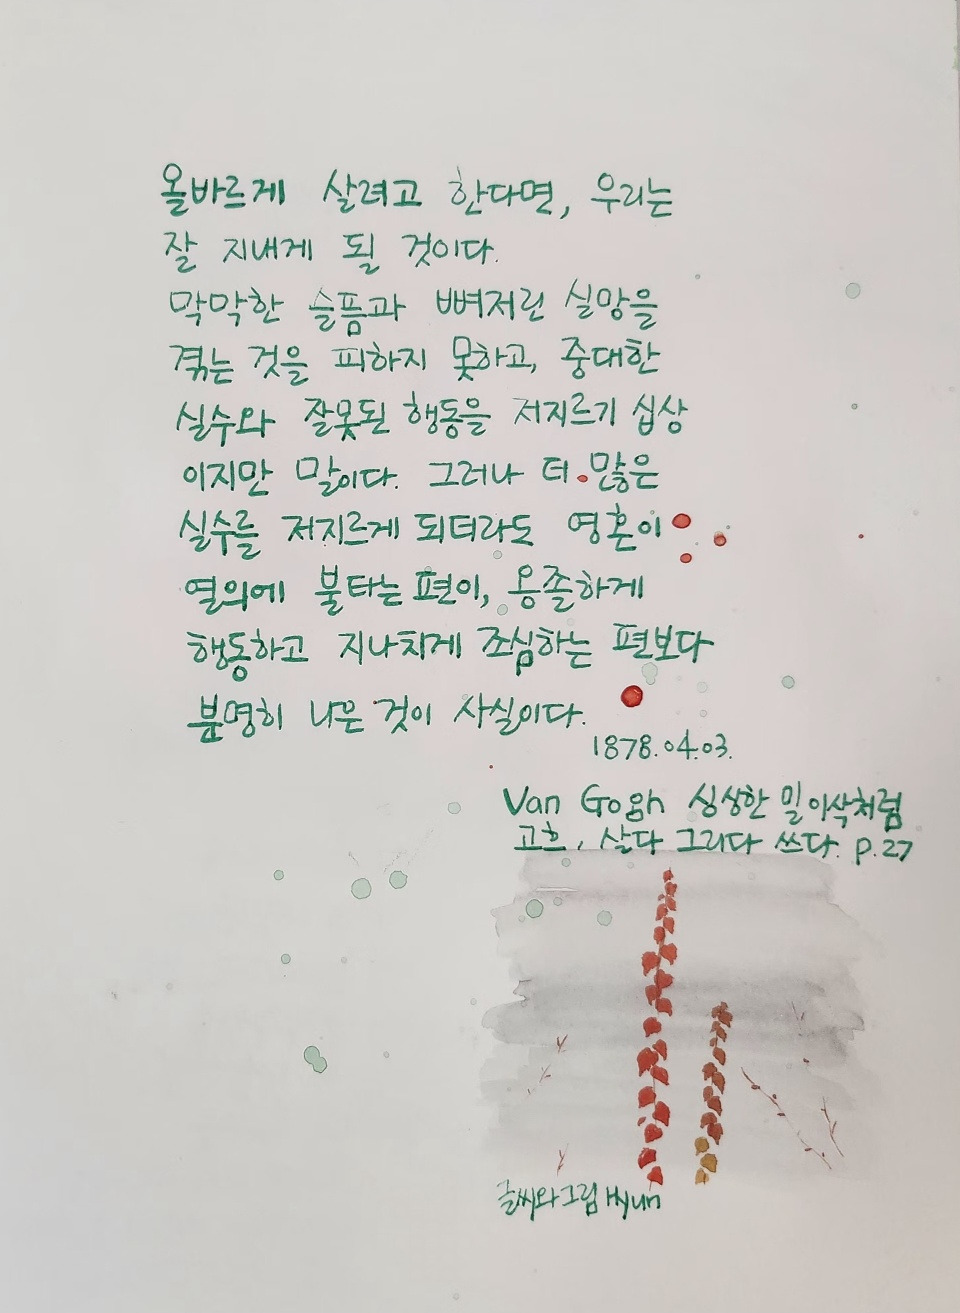 올바르게 살려고 한다면, 우리는
잘 지내게 될 것이다.
막막한 슬픔과 뼈저린 실망을
겪는 것을 피하지 못하고, 중대한
실수와 잘못된 행동을 저지르기 십상
이지만 말이다. 그러나 더 많은
실수를 저지르게 되더라도 영혼이
열의에 불타는 편이, 옹졸하게
행동하고 지나치게 조심하는 편보다
분명히 나은 것이 사실이다.
1878.04.03.
Van Gogh 싱싱한 밀 이삭처럼
고흐, 살다 그리다 쓰다. p.27
글씨와그림 Hyun